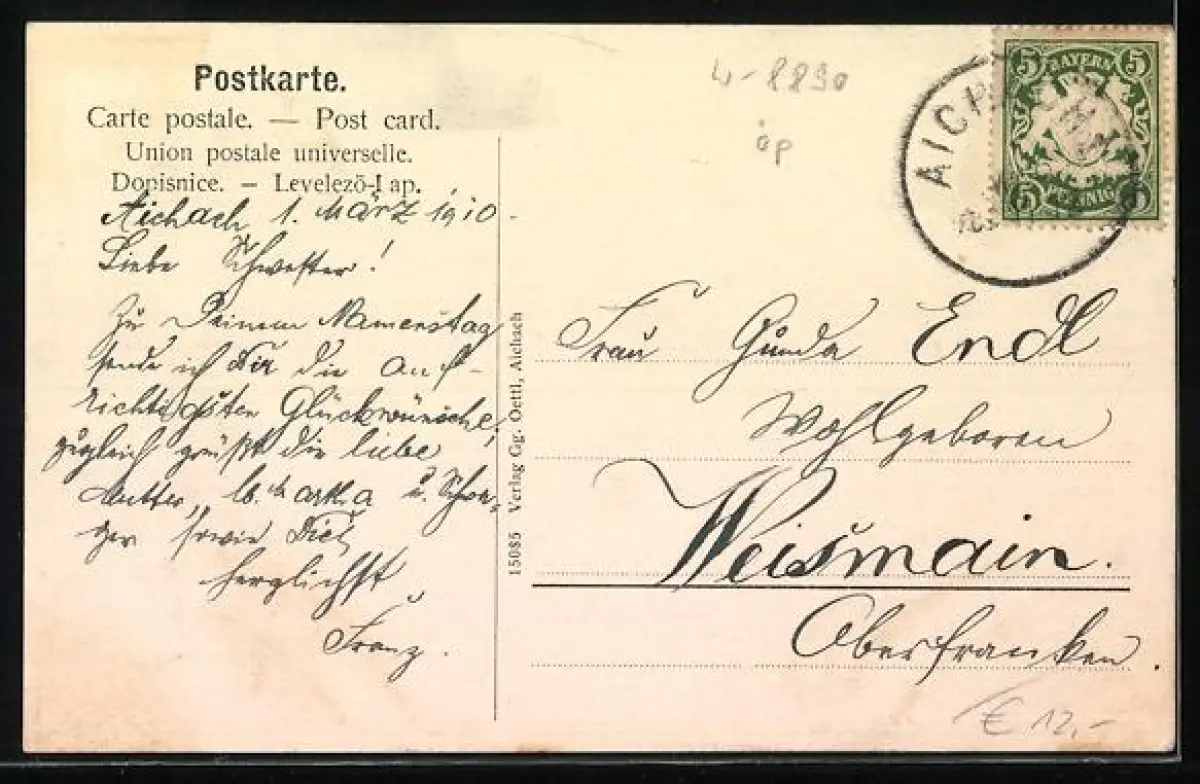 Postkarte.
Carte postale. — Post card.
Union postale universelle.
Dopisnice. — Levelezö-Lap.
Aichach 1. März 1910.
Liebe Schwester!
Zu Deinem Namenstag
sende ich Dir die auf-
richtigsten Glückwünsche,
zugleich grüßt die liebe
Mutter, u. Schwa-
ger sowie Dich
herzlichst
Franz.
15085 Verlag Gg. Oettl, Aichach
4-8890
op
5 BAYERN 5
5 PFENNIG 5
AICHACH
Frau Gunda Endl
Wohlgeboren
Weismain.
Oberfranken.
€ 12,-